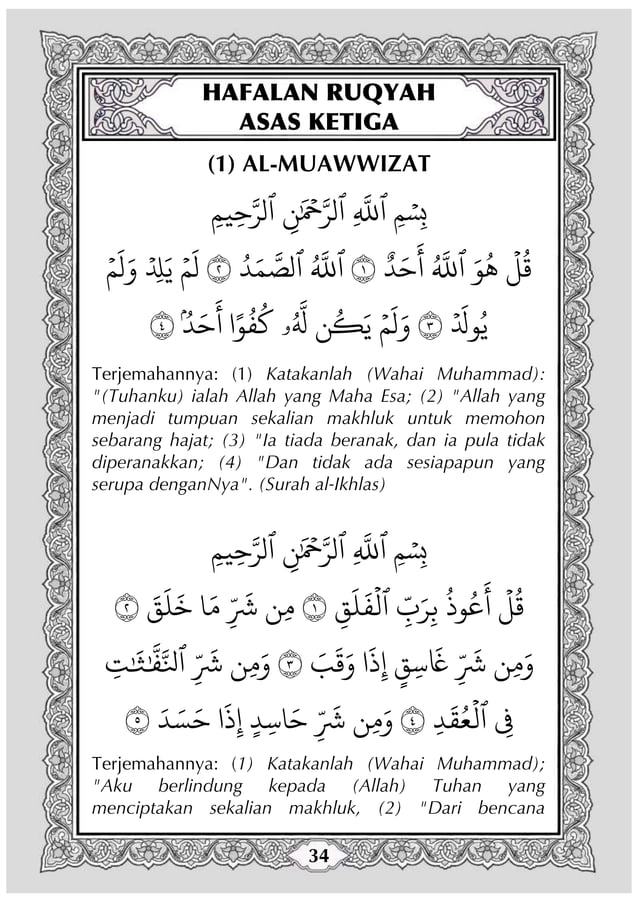 HAFALAN RUQYAH
ASAS KETIGA
(1) AL-MUAWWIZAT
بِسۡمِ ٱللَّهِ ٱلرَّحۡمَٰنِ ٱلرَّحِيمِ
قُلۡ هُوَ ٱللَّهُ أَحَدٌ ١ ٱللَّهُ ٱلصَّمَدُ ٢ لَمۡ يَلِدۡ وَلَمۡ
يُولَدۡ ٣ وَلَمۡ يَكُن لَّهُۥ كُفُوًا أَحَدُۢ ٤
Terjemahannya: (1) Katakanlah (Wahai Muhammad):
"(Tuhanku) ialah Allah yang Maha Esa; (2) "Allah yang
menjadi tumpuan sekalian makhluk untuk memohon
sebarang hajat; (3) "Ia tiada beranak, dan ia pula tidak
diperanakkan; (4) "Dan tidak ada sesiapapun yang
serupa denganNya". (Surah al-Ikhlas)
بِسۡمِ ٱللَّهِ ٱلرَّحۡمَٰنِ ٱلرَّحِيمِ
قُلۡ أَعُوذُ بِرَبِّ ٱلۡفَلَقِ ١ مِن شَرِّ مَا خَلَقَ ٢
وَمِن شَرِّ غَاسِقٍ إِذَا وَقَبَ ٣ وَمِن شَرِّ ٱلنَّفَّٰثَٰتِ
فِي ٱلۡعُقَدِ ٤ وَمِن شَرِّ حَاسِدٍ إِذَا حَسَدَ ٥
Terjemahannya: (1) Katakanlah (Wahai Muhammad);
"Aku berlindung kepada (Allah) Tuhan yang
menciptakan sekalian makhluk, (2) "Dari bencana
34